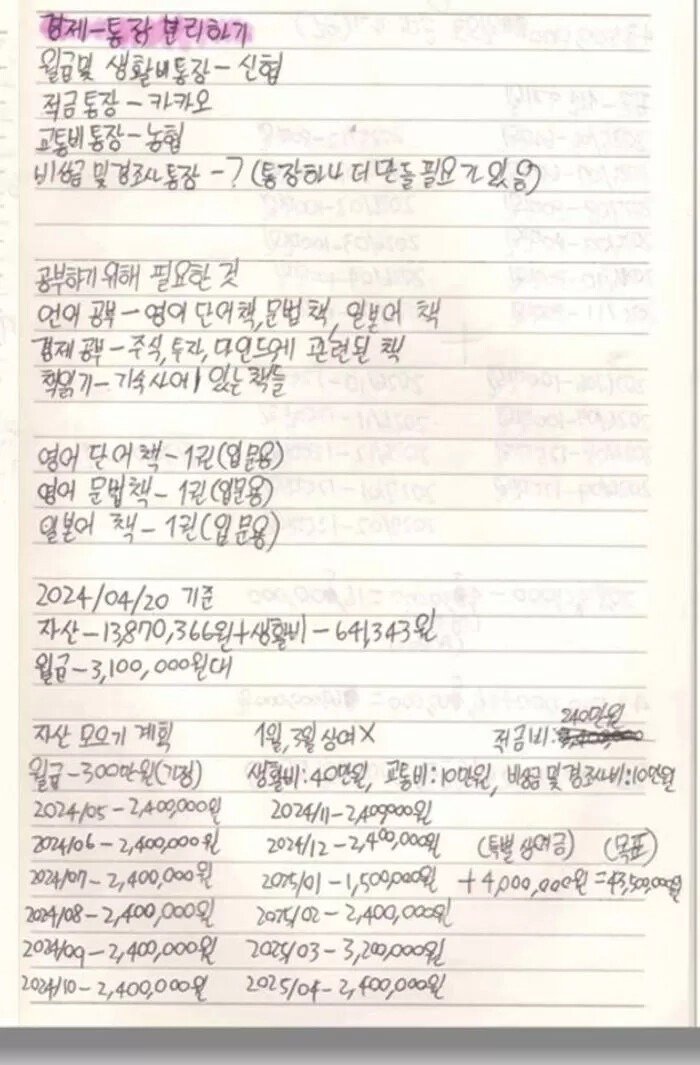 경제-통장 분리하기
월급및 생활비통장-신협
적금통장-카카오
교통비통장-농협
비상금 및 경조사통장-? (통장하나 더 만들 필요가 있음)
공부하기 위해 필요한 것
언어 공부-영어 단어책, 문법책, 일본어 책
경제 공부-주식, 투자, 마인드에 관련된 책
책읽기-기숙사에 있는 책들
영어 단어책-1권(입문용)
영어 문법책-1권(입문용)
일본어 책-1권(입문용)
2024/04/20 기준
자산-13,870,366원+생활비-641,343원
월급-3,100,000원대
자산 모으기 계획 1월, 3월 상여X 적금비: 240만원
월급-300만원(가정) 생활비:40만원, 교통비:10만원, 비상금 및 경조사비:10만원
2024/05-2,400,000원 2024/11-2,400,000원
2024/06-2,400,000원 2024/12-2,400,000원 (특별 상여금) (목표)
2024/07-2,400,000원 2025/01-1,500,000원 +4,000,000원=43,500,000원
2024/08-2,400,000원 2025/02-2,400,000원
2024/09-2,400,000원 2025/03-3,200,000원
2024/10-2,400,000원 2025/04-2,400,000원